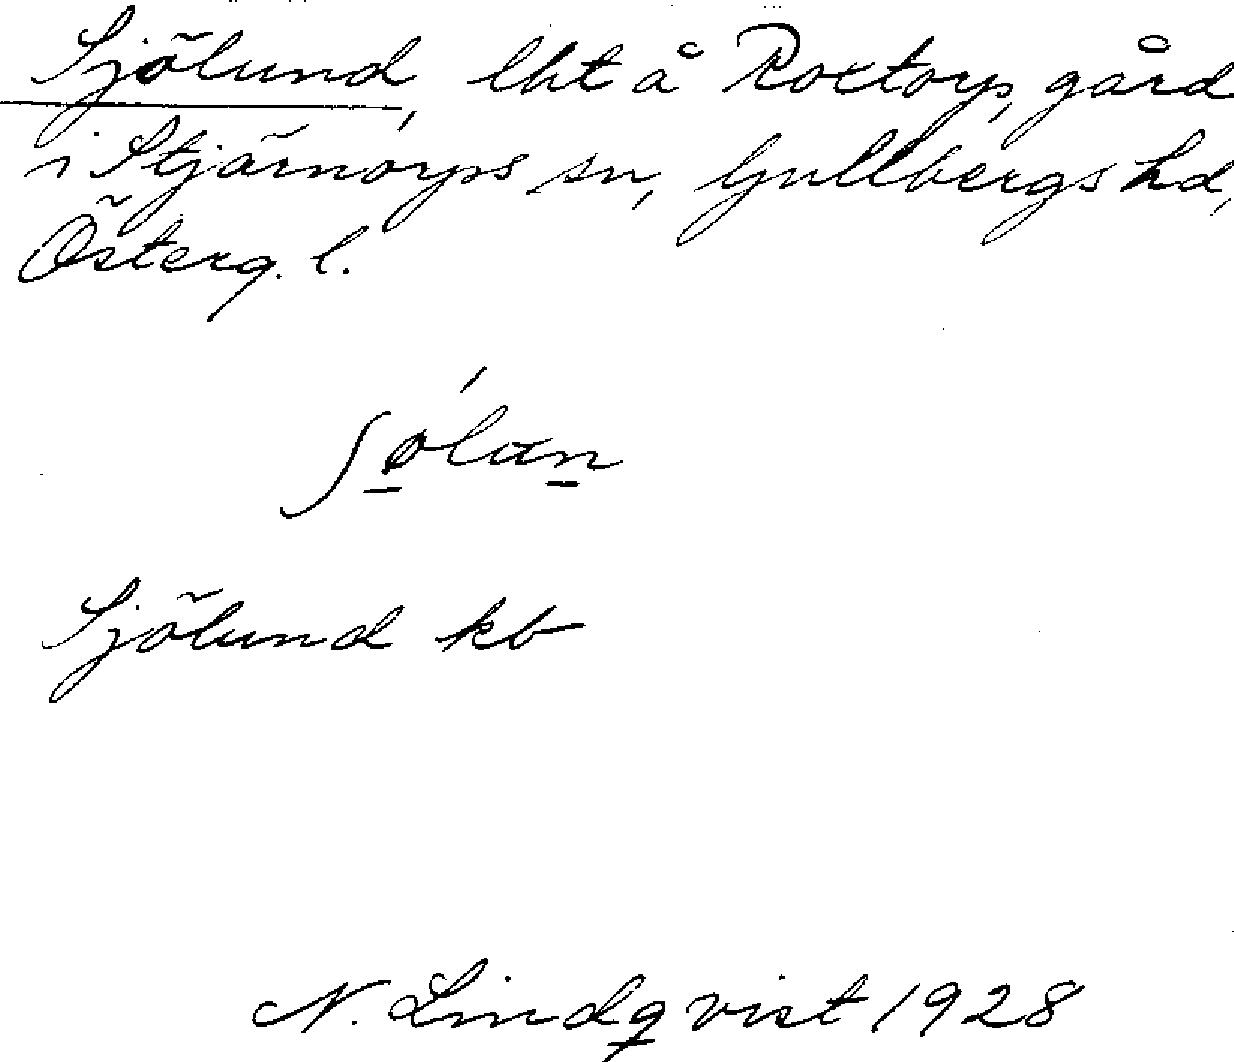 Sjölund, lht å Roxtorps gård
i Stjärnorps sn, Gullbergs hd,
Österg. l.
ʃø̱´lan̲
Sjölund kb
N. Lindqvist 1928